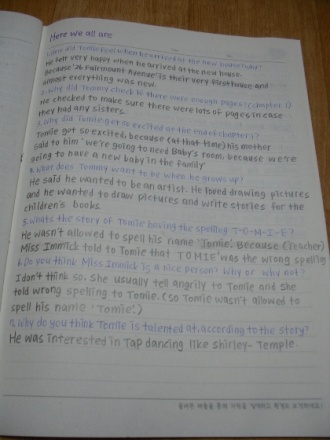 Here we all are
1. How did Tomie feel when he arrived at the new house? Why?
He felt very happy when he arrived at the new house.
Because '26 Fairmount Avenue' is their very first house and
almost everything was new.
2. Why did Tommy check if there were enough pages? (chapter 1)
He checked to make sure there were lots of pages in case
they had any sisters.
3. Why did Tomie get so excited at the end of chapter 1?
Tomie got so excited, because (at that time) his mother
said to him 'we're going to need Baby's room, because we're
going to have a new baby in the family'
4. What does Tommy want to be when he grows up?
He said he wanted to be an artist. He loved drawing pictures
and he wanted to draw pictures and write stories for the
children's books.
5. What's the story of Tomie having the spelling T-O-M-I-E?
He wasn't allowed to spell his name 'Tomie'. Because (Teacher)
Miss Immick told to Tomie that 'TOMIE' was the wrong spelling
6. Do you think Miss Immick is a nice person? Why or why not?
I don't think so. She usually tell angrily to Tomie and she
told wrong spelling to Tomie. (So Tomie wasn't allowed to
spell his name 'Tomie'.)
7. Why do you think Tomie is talented at, according to the story?
He was interested in Tap dancing like Shirley-Temple.